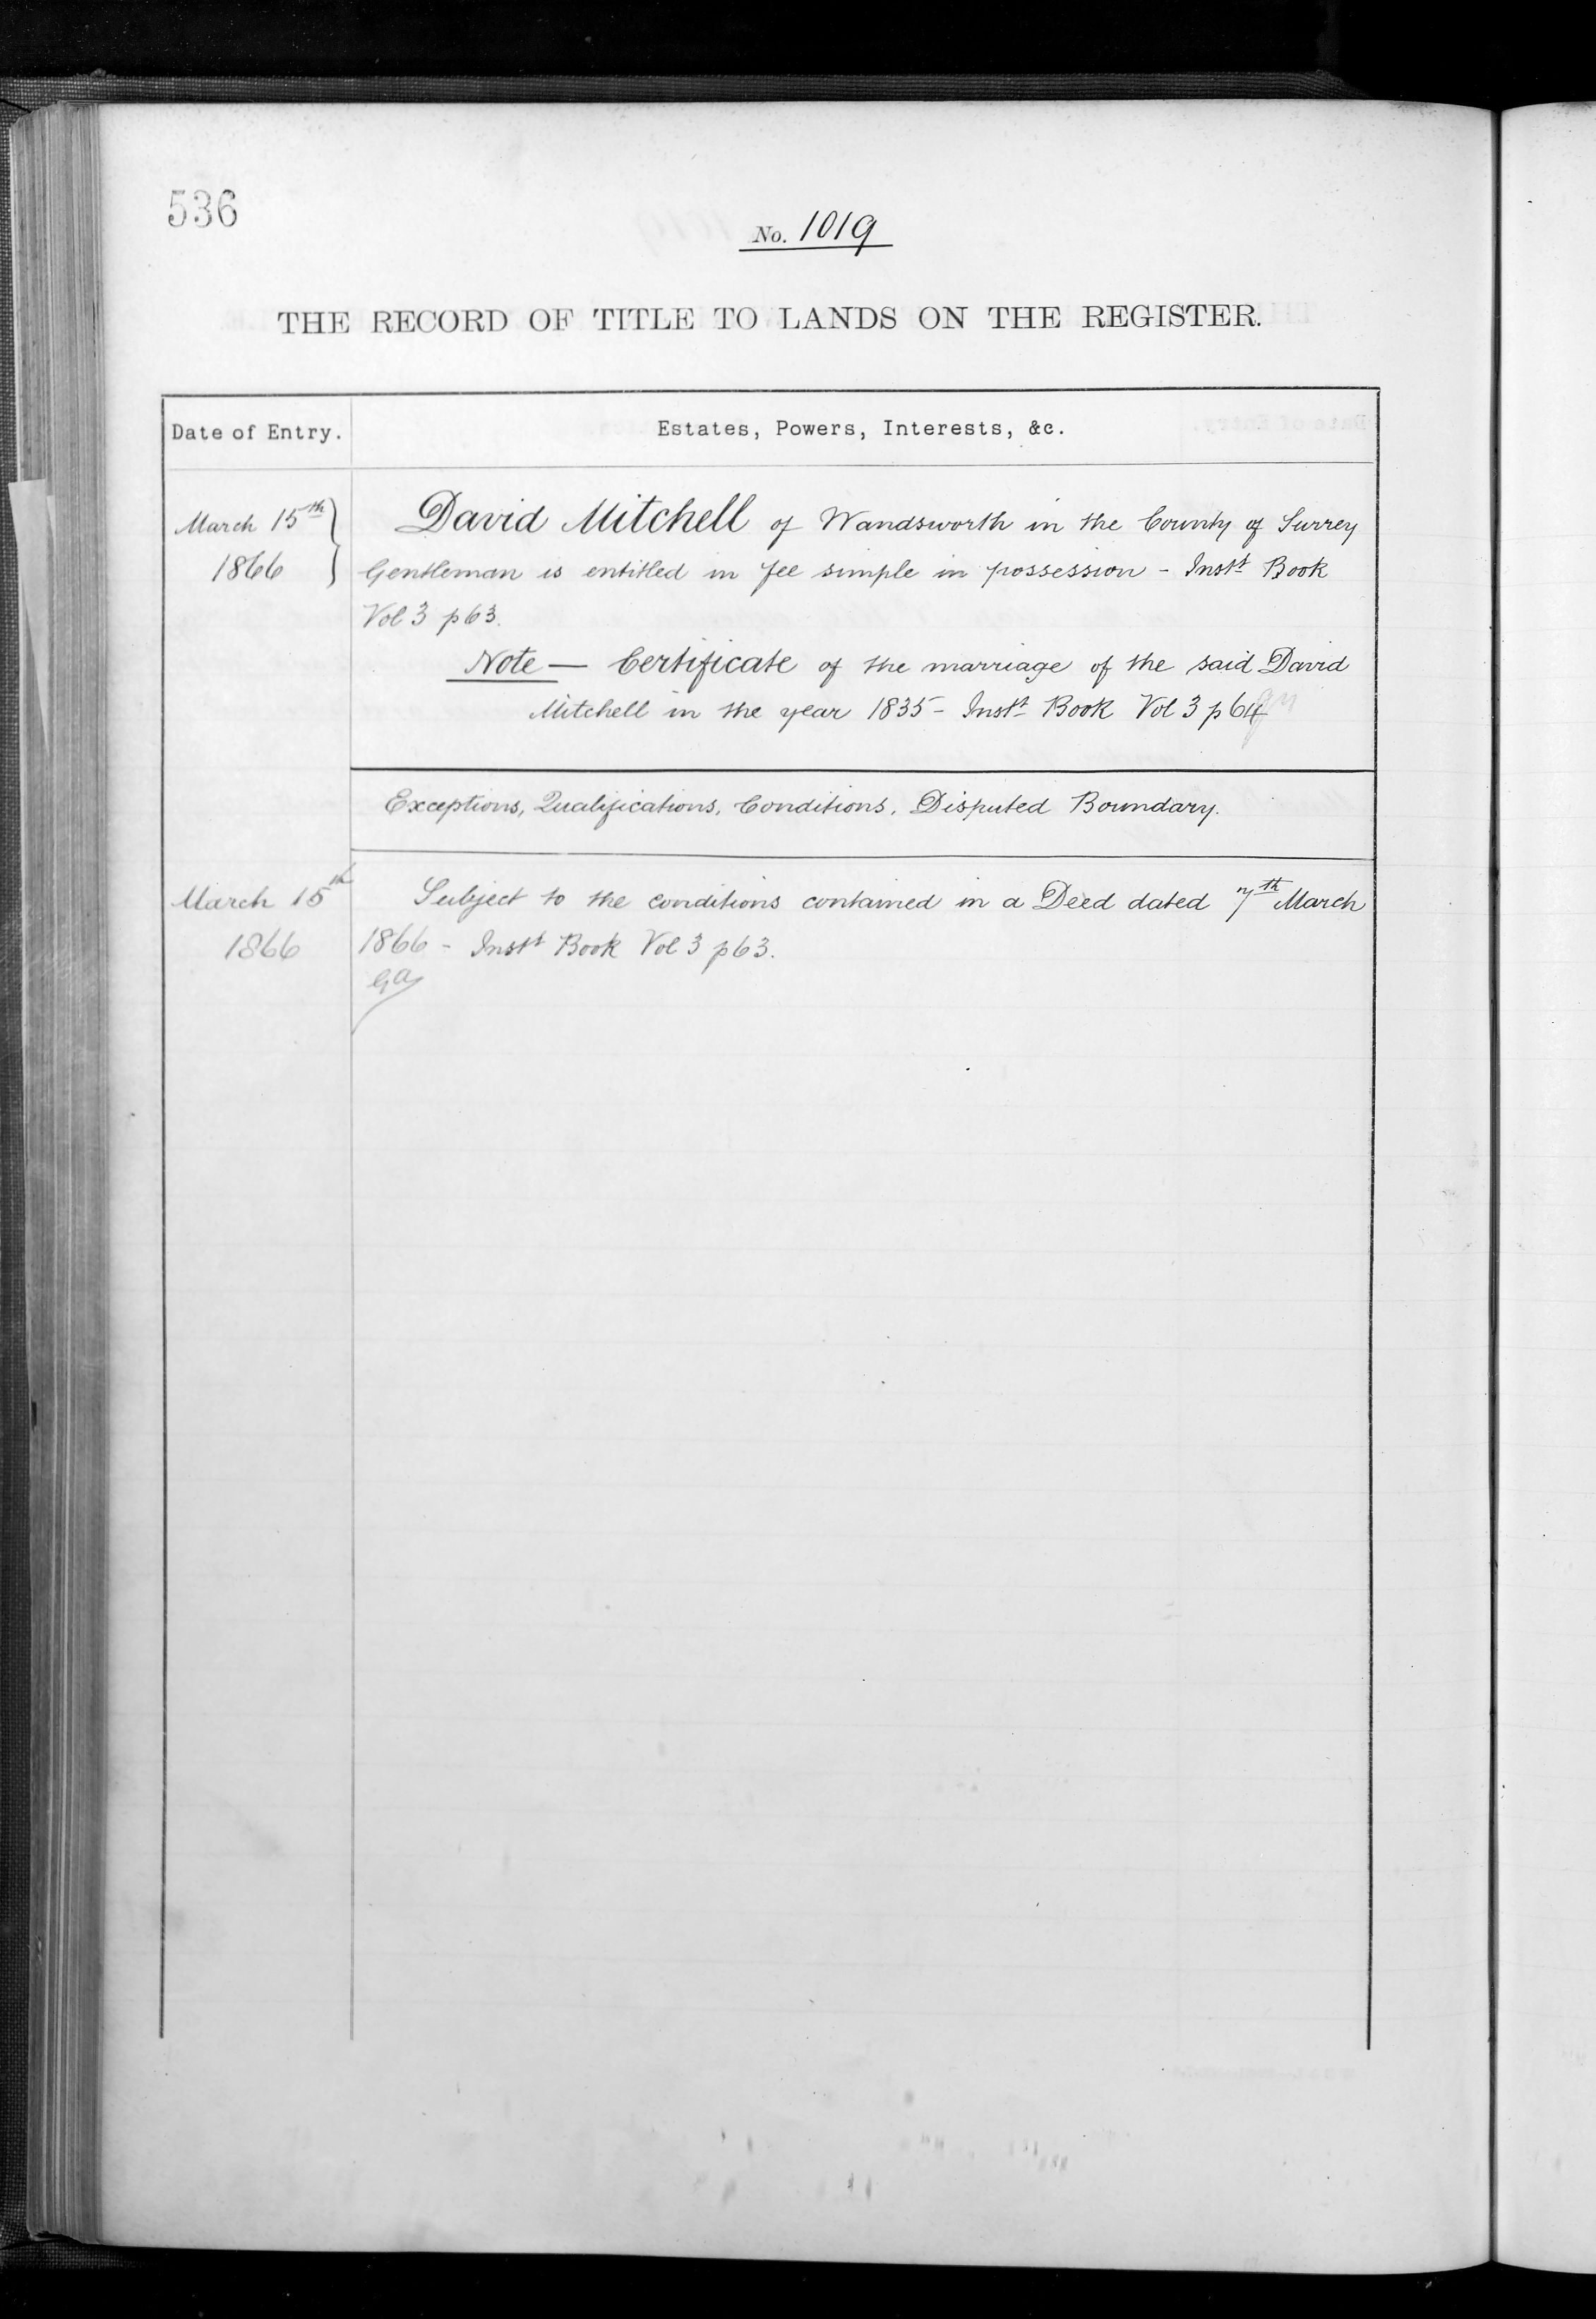 536
No. 1019
THE RECORD OF TITLE TO LANDS ON THE REGISTER.
Date of Entry.
Estates, Powers, Interests, &c.
March 15th
1866
David Mitchell of Wandsworth in the County of Surrey
Gentleman is entitled in fee simple in possession - Instt Book
Vol 3 p 63.
Note — Certificate of the marriage of the said David
Mitchell in the year 1835 - Instt Book Vol 3 p 64
Exceptions, Qualifications, Conditions, Disputed Boundary.
March 15th
1866
Subject to the conditions contained in a Deed dated 7th March
1866 - Instt Book Vol 3 p 63.